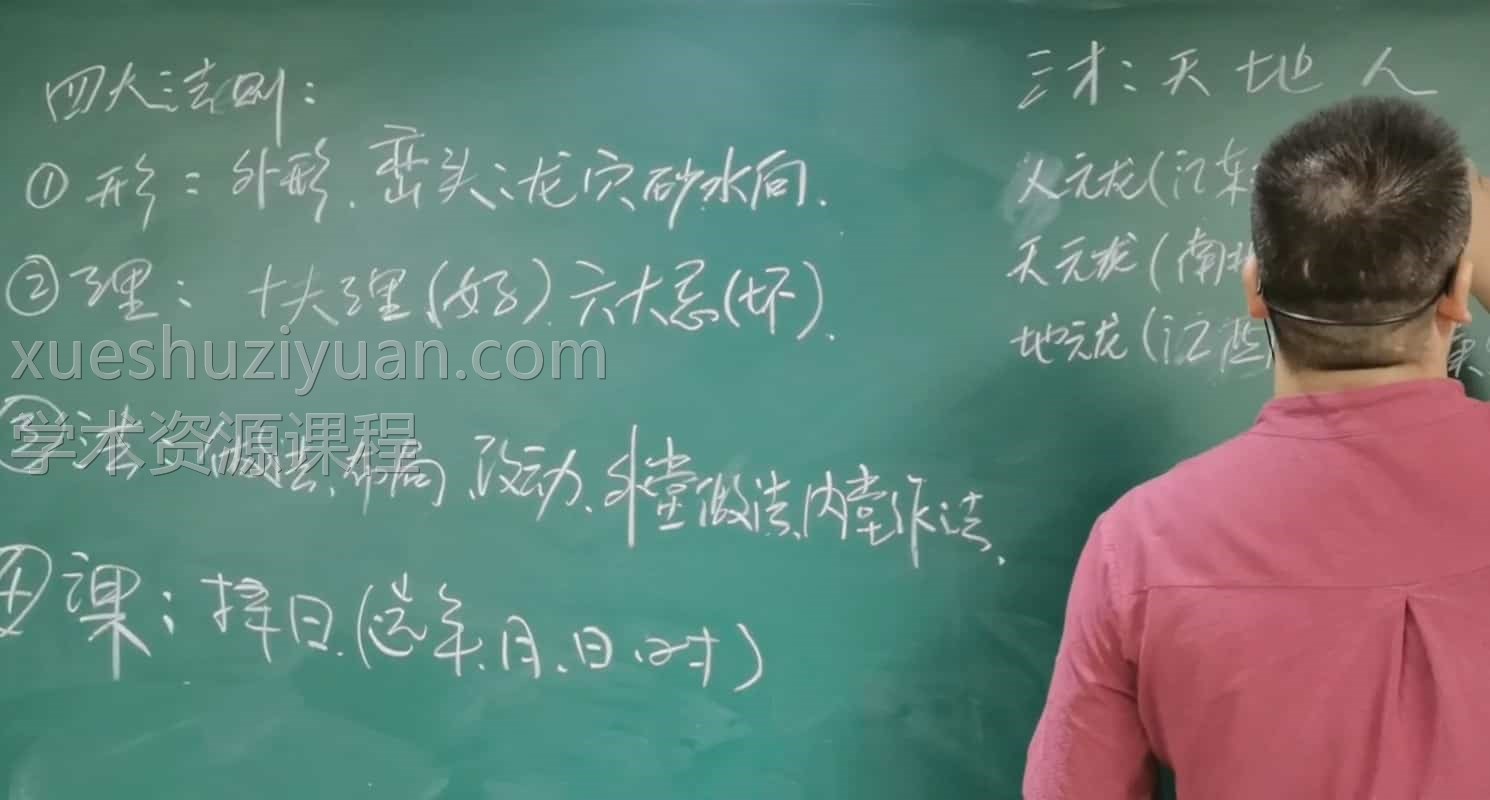 四大法则:
①形:外形、峦头:龙穴砂水向.
②理: 十大理(好).六大忌(坏).
xueshuziyuan.com
学术资源课程
③法:做法、布局、改动、外堂做法、内堂作法、
④课:择日.(选年、月、日、时)
三才:天 地 人
人元龙(江东
天元龙(南北
地元龙(江西